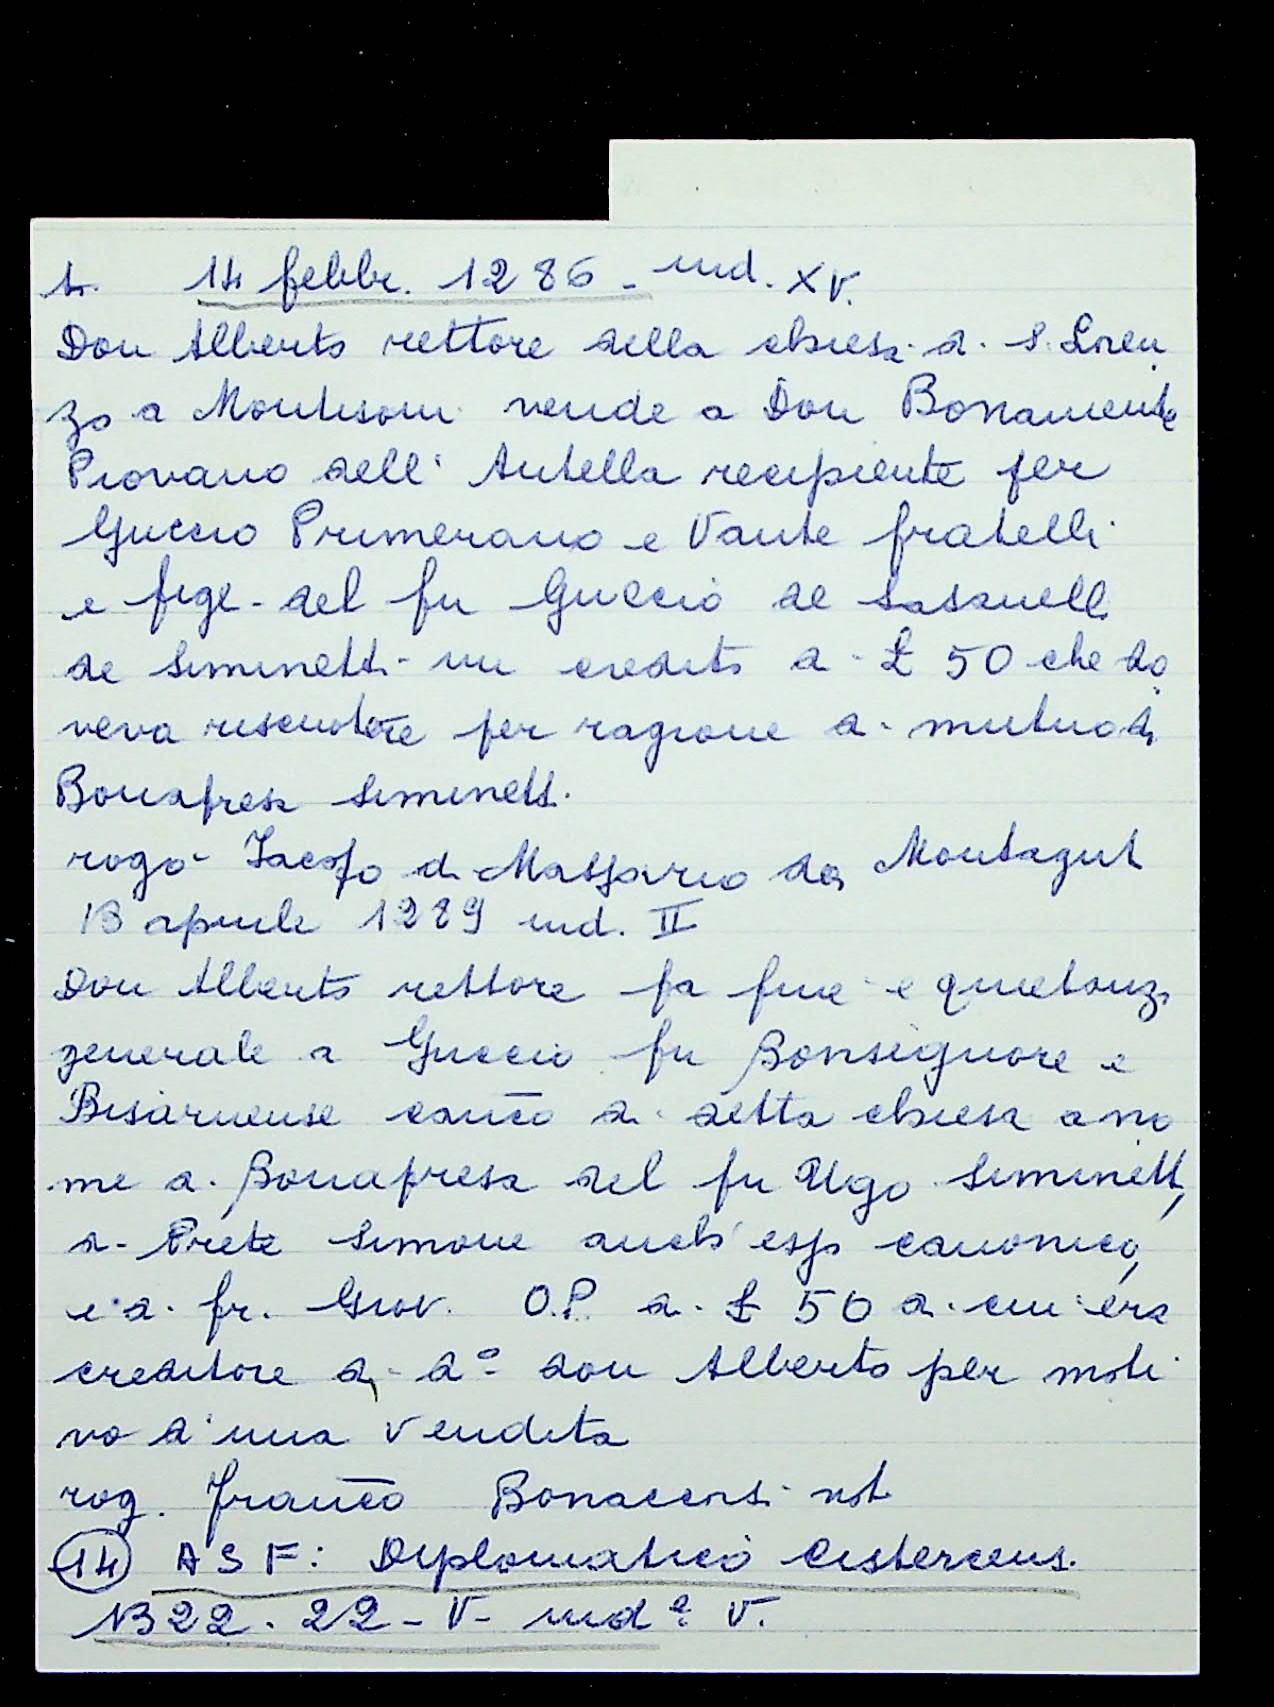 1. 14 febbr. 1286 - ind. XV.
Don Alberto rettore della chiesa di S. Loren
zo a Montisoni vende a Don Bonamente
Piovano dell' Antella recipiente per
Guccio Primerano e Vante fratelli
e figl. del fu Guccio de
de Siminetti un credito di £ 50 che do
veva riscuotere per ragione di mutuo da
Bonafresa Siminetti.
rogò Iacopo di da Montaguti
13 aprile 1289 ind. II
Don Alberto rettore fa fine e quietanza
generale a Guccio fu Bonsignore e
Bisarnense canco di detta chiesa a no
me di Bonafresa del fu Ugo Siminetti,
di Prete Simone anch' esso canonico,
e di fr. Giov. O.P. di £ 50 di cui era
creditore do don Alberto per moti
vo d'una vendita
rog. Franco Bonaccorsi not.
14 ASF: Diplomatico Cistercens.
1322. 22 - V - inda V.